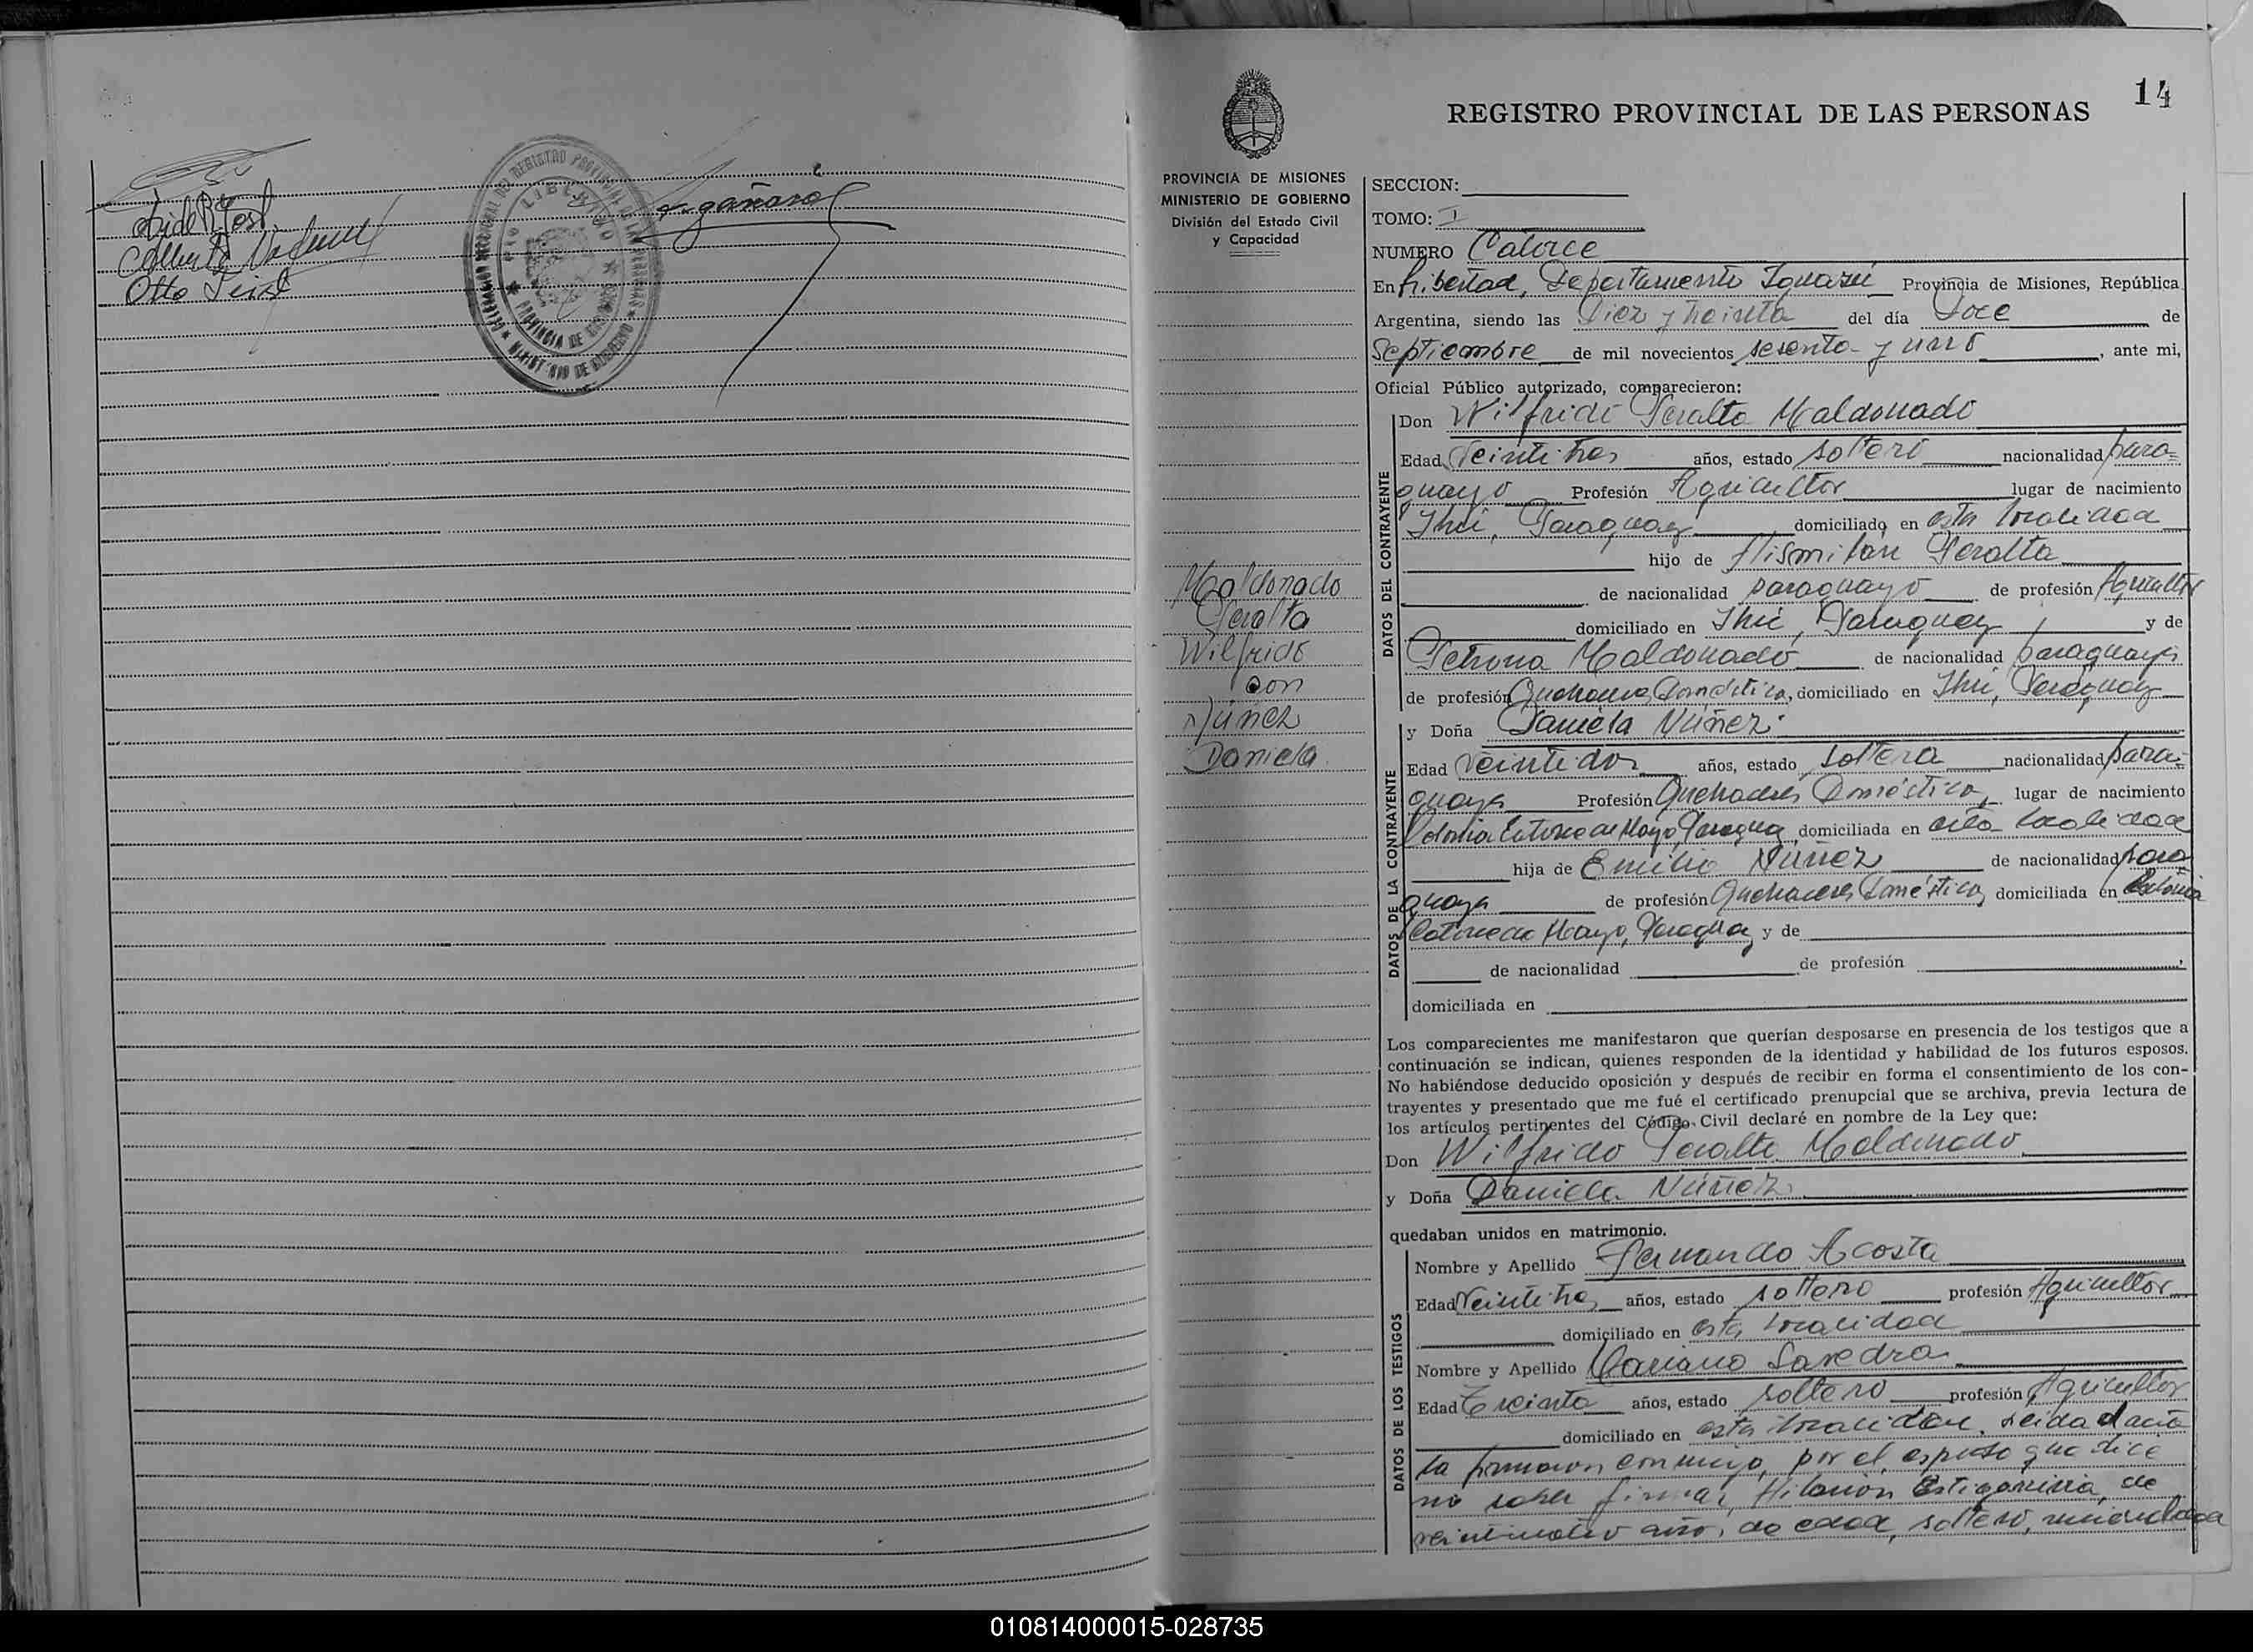 Otto
REGISTRO PROVINCIAL
LIBERTAD
PROVINCIA DE MISIONES
14
REGISTRO PROVINCIAL DE LAS PERSONAS
PROVINCIA DE MISIONES
MINISTERIO DE GOBIERNO
División del Estado Civil
y Capacidad
Maldonado
Peralta
Wilfrido
con
Núñez
Daniela
SECCION:
TOMO: I
NUMERO Catorce
En Libertad, Departamento Iguazú Provincia de Misiones, República
Argentina, siendo las Diez y treinta del día Doce de
Septiembre de mil novecientos sesenta y uno, ante mi,
Oficial Público autorizado, comparecieron:
DATOS DEL CONTRAYENTE
Don Wilfrido Peralta Maldonado
Edad Veintitres años, estado soltero nacionalidad para=
guayo Profesión Agricultor lugar de nacimiento
Ihú, Paraguay domiciliado en esta localidad
hijo de Peralta
de nacionalidad paraguayo de profesión Agricultor
domiciliado en Ihú, Paraguay y de
Petrona Maldonado de nacionalidad paraguaya
de profesión Quehaceres Domésticos, domiciliado en Ihú, Paraguay
DATOS DE LA CONTRAYENTE
y Doña Daniela Núñez
Edad Veintidos años, estado soltera nacionalidad para=
guaya Profesión Quehaceres Domésticos, lugar de nacimiento
Colonia Catorce de Mayo, Paraguay, domiciliada en esta localidad
hija de Núñez de nacionalidad para
guaya de profesión Quehaceres Domésticos, domiciliada en Colonia
Catorce de Mayo, Paraguay y de
de nacionalidad de profesión
domiciliada en
Los comparecientes me manifestaron que querían desposarse en presencia de los testigos que a
continuación se indican, quienes responden de la identidad y habilidad de los futuros esposos.
No habiéndose deducido oposición y después de recibir en forma el consentimiento de los con-
trayentes y presentado que me fué el certificado prenupcial que se archiva, previa lectura de
los artículos pertinentes del Código Civil declaré en nombre de la Ley que:
Don Wilfrido Peralta Maldonado
y Doña Daniela Núñez
quedaban unidos en matrimonio.
DATOS DE LOS TESTIGOS
Nombre y Apellido Fernando Acosta
Edad Veintitres años, estado soltero profesión Agricultor
domiciliado en esta localidad
Nombre y Apellido Mariano Savedra
Edad Treinta años, estado soltero profesión Agricultor
domiciliado en esta localidad. Leida el acta
la firmaron conmigo, por el esposo que dice
no saber firmar, Hilarion Estigarribia, de
años, de edad, soltero,
010814000015-028735